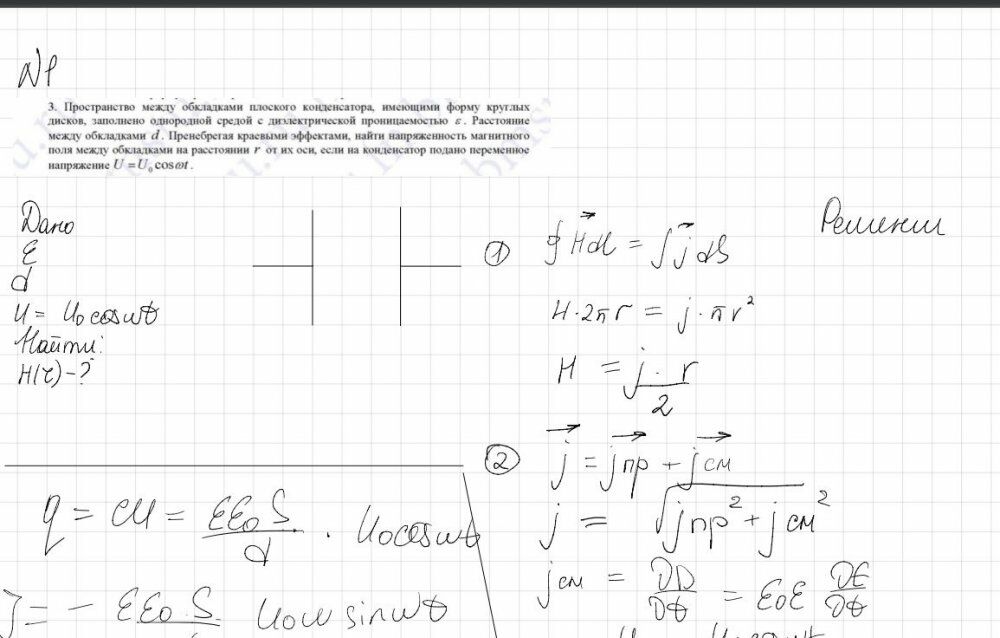 №1
3. Пространство между обкладками плоского конденсатора, имеющими форму круглых
дисков, заполнено однородной средой с диэлектрической проницаемостью ε. Расстояние
между обкладками d. Пренебрегая краевыми эффектами, найти напряженность магнитного
поля между обкладками на расстоянии r от их оси, если на конденсатор подано переменное
напряжение U = U₀ cos ωt.
Дано
ε
d
U = U₀ cos ωt
Найти:
H(r) - ?
Решении
① ∮ H⃗ dl = ∫ j⃗ dS
H · 2πr = j · πr²
H = j · r / 2
② j⃗ = j⃗пр + j⃗см
j = √(jпр² + jсм²)
jсм = ∂D/∂t = ε₀ε ∂E/∂t
q = CU = εε₀S/d · U₀ cos ωt
J = - εε₀ · S U₀ω sin ωt